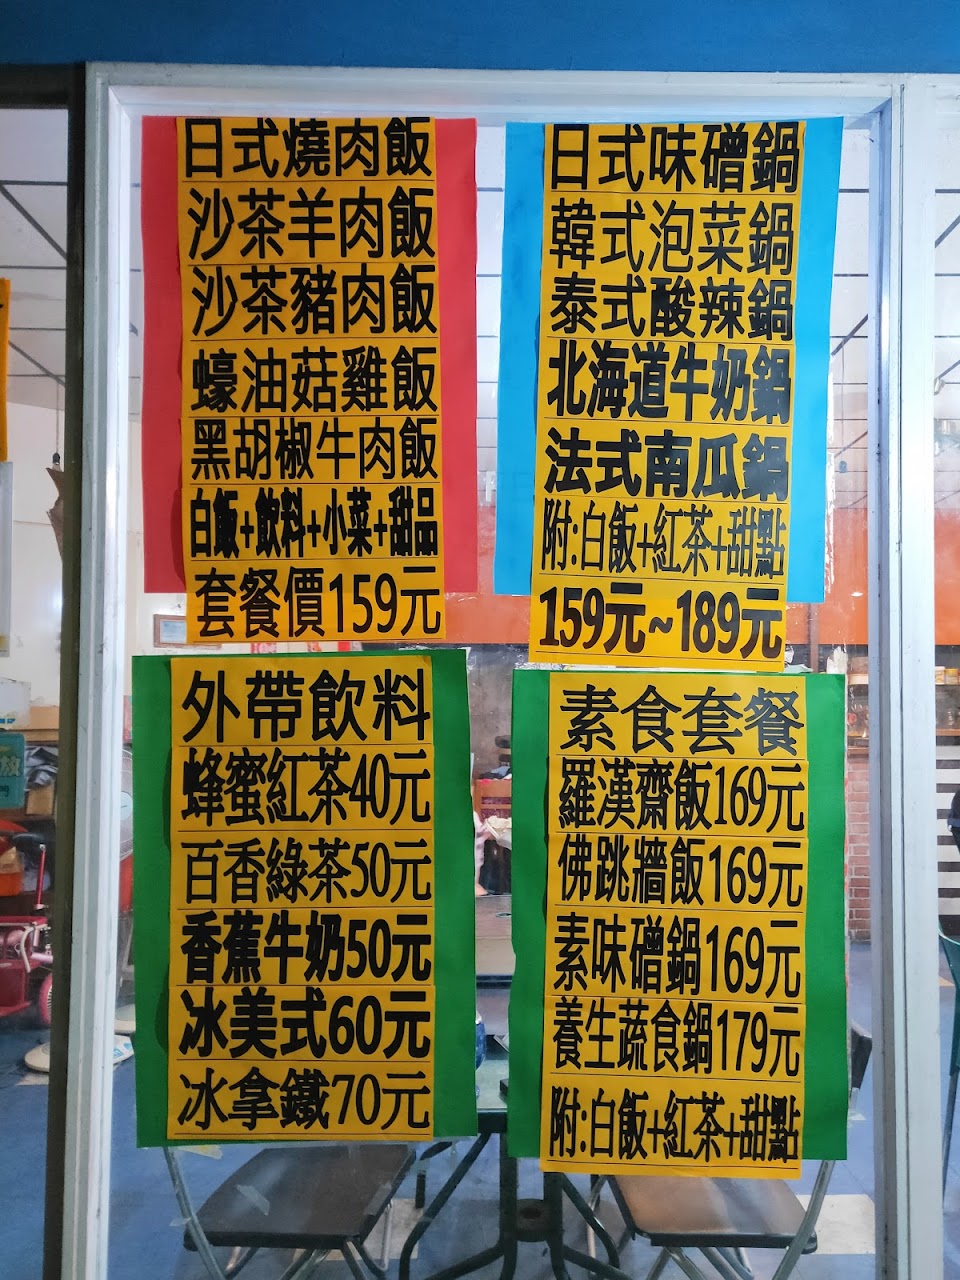 日式燒肉飯
沙茶羊肉飯
沙茶豬肉飯
蠔油菇雞飯
黑胡椒牛肉飯
白飯+飲料+小菜+甜品
套餐價159元
日式味磳鍋
韓式泡菜鍋
泰式酸辣鍋
北海道牛奶鍋
法式南瓜鍋
附:白飯+紅茶+甜點
159元~189元
外帶飲料
蜂蜜紅茶40元
百香綠茶50元
香蕉牛奶50元
冰美式60元
冰拿鐵70元
素食套餐
羅漢齋飯169元
佛跳牆飯169元
素味磳鍋169元
養生蔬食鍋179元
附:白飯+紅茶+甜點